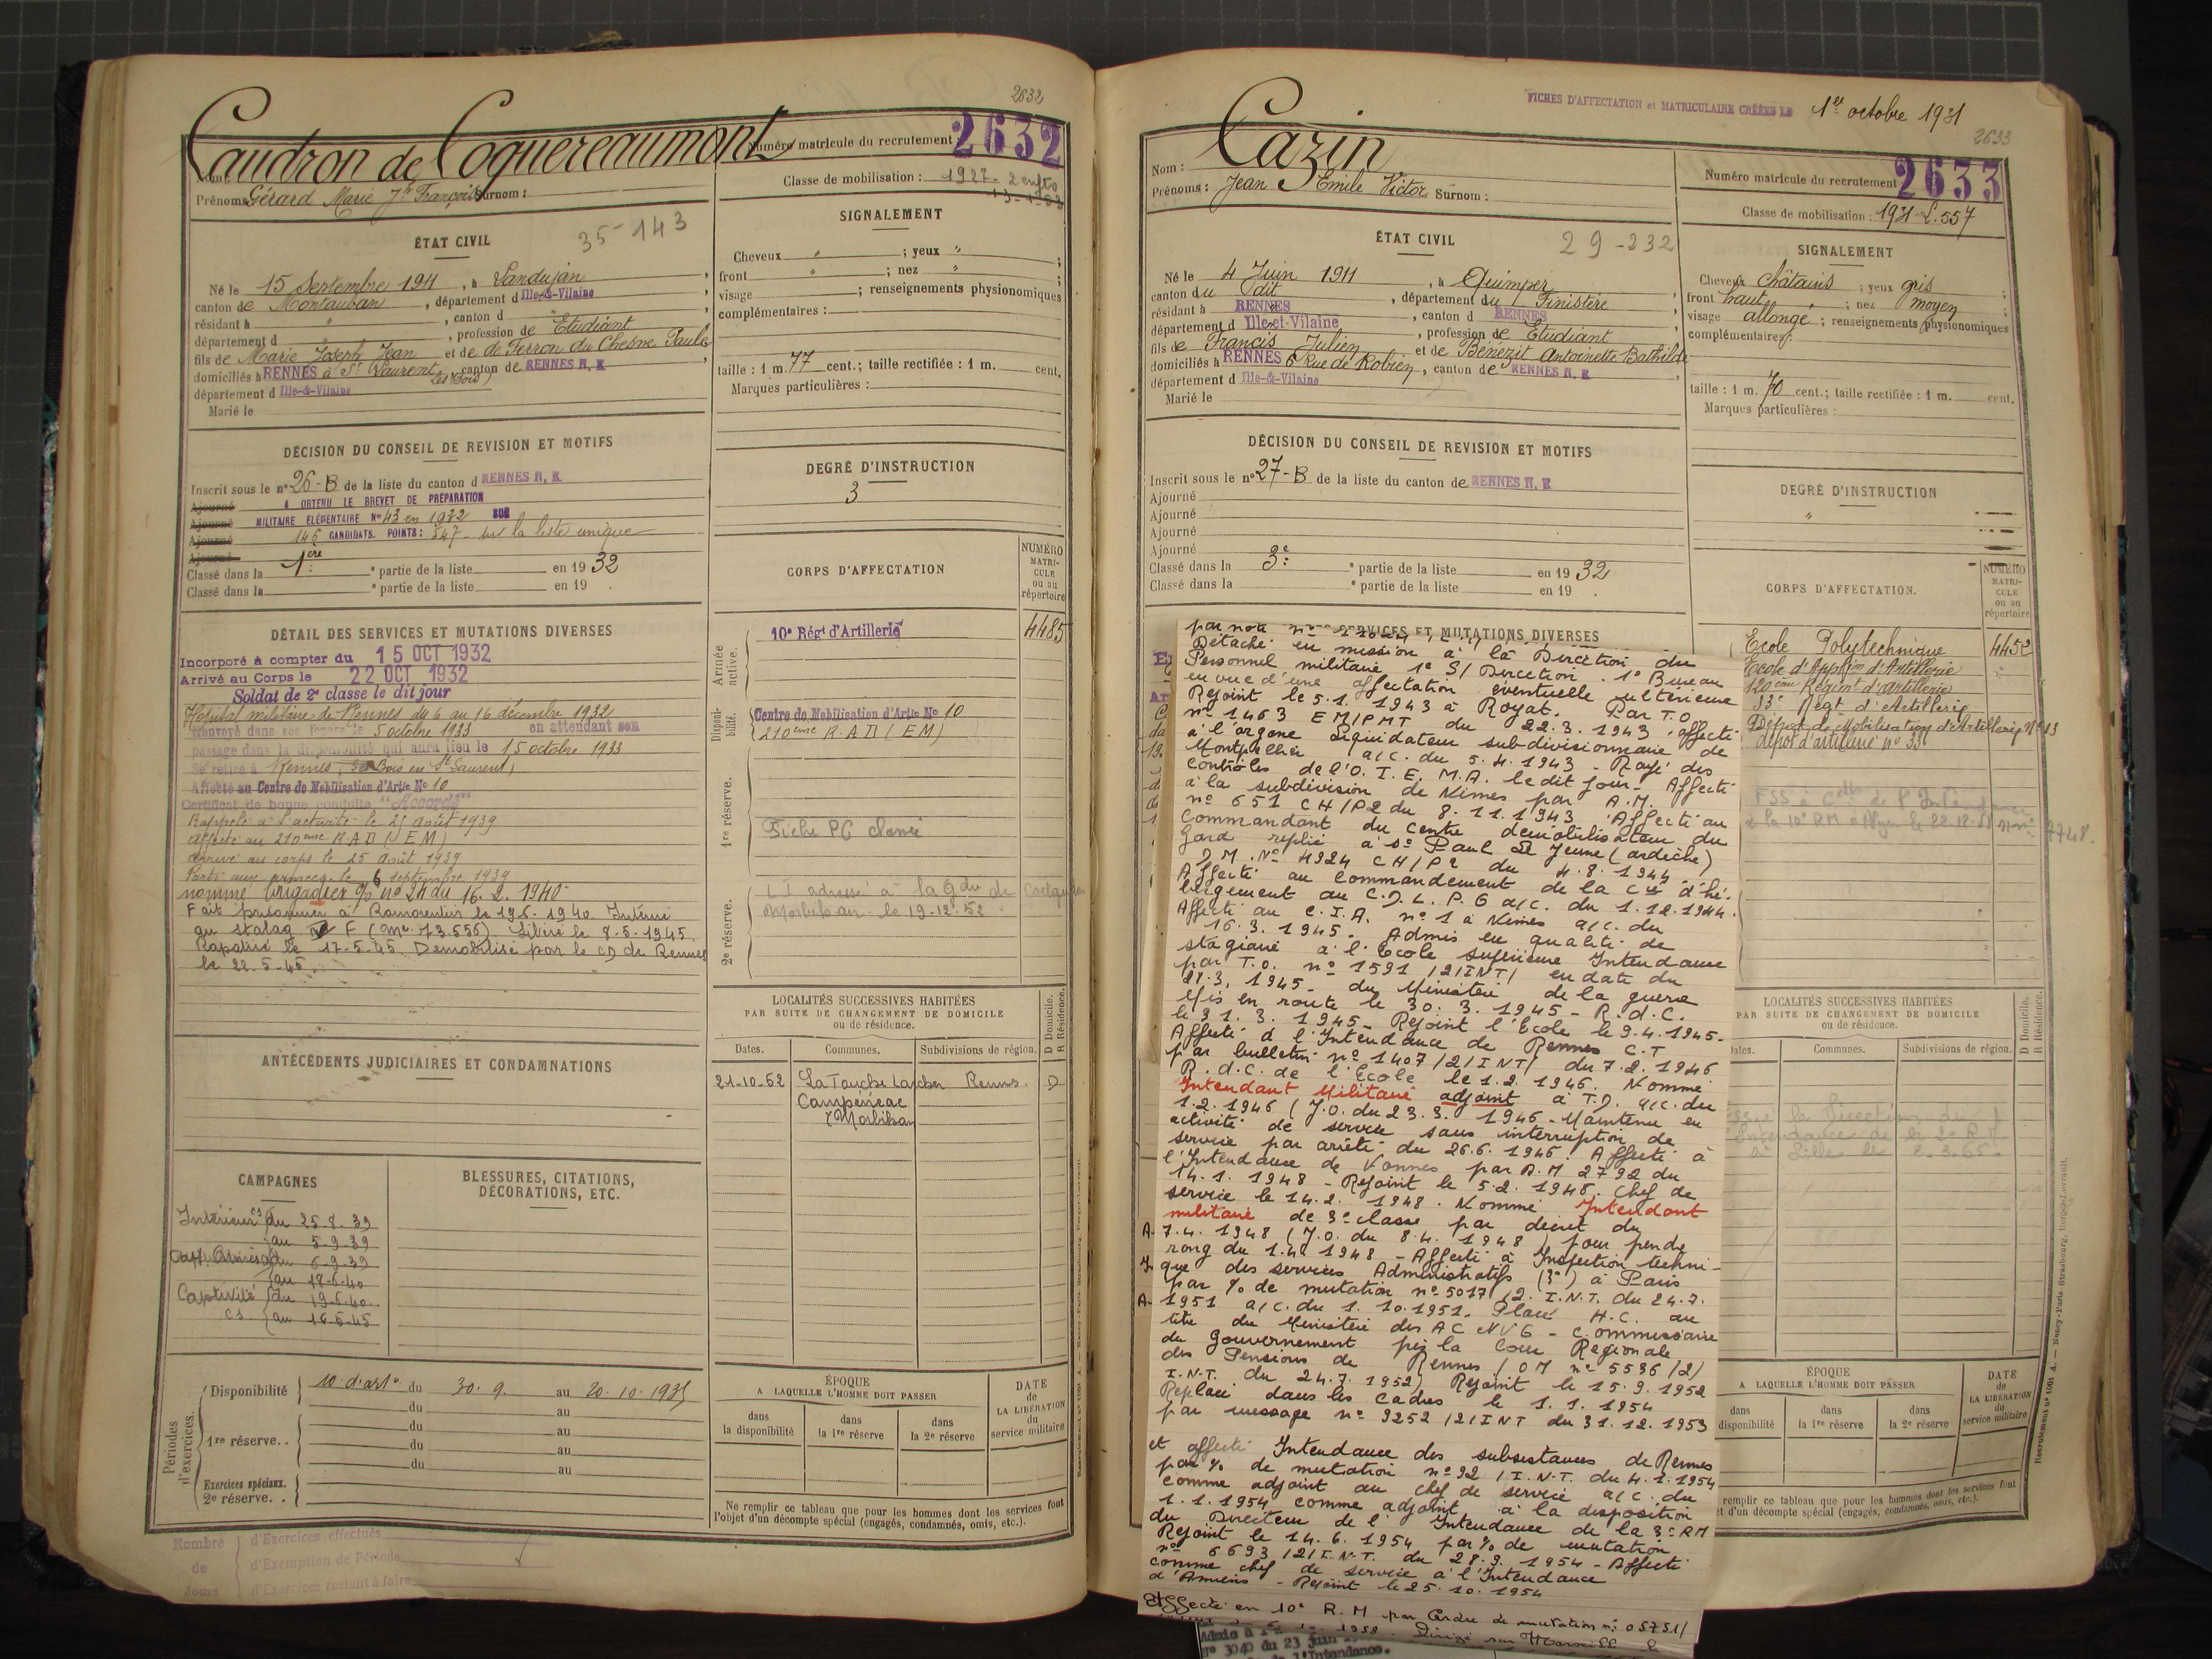 2632
Caudron de Coquereaumont
Numéro matricule du recrutement 2632
Nom :
Prénoms Gérard Marie Jh François Surnom :
Classe de mobilisation : 1927 - 2 enfts
ÉTAT CIVIL
35-143
Né le 15 Septembre 1911, à Landujan,
canton de Montauban, département d Ille-&-Vilaine
résidant à " , canton d "
département d " , profession de Etudiant
fils de Marie Joseph Jean et de de Ferron du Chesne Paule
domiciliés à RENNES à St Laurent canton de RENNES N. E
(les Bois)
département d Ille-&-Vilaine
Marié le
SIGNALEMENT
Cheveux " ; yeux " ;
front " ; nez " ;
visage ; renseignements physionomiques
complémentaires :
taille : 1 m. 77 cent.; taille rectifiée : 1 m. cent.
Marques particulières :
DÉCISION DU CONSEIL DE REVISION ET MOTIFS
Inscrit sous le n° 26-B de la liste du canton d RENNES N. E
Ajourné A OBTENU LE BREVET DE PRÉPARATION
Ajourné MILITAIRE ÉLÉMENTAIRE N° 43 en 1932 SUR
Ajourné 146 CANDIDATS. POINTS : 547 - sur la liste unique
Ajourné
Classé dans la 1ère partie de la liste en 19 32
Classé dans la ° partie de la liste en 19 .
DEGRÉ D'INSTRUCTION
3
CORPS D'AFFECTATION
NUMÉRO MATRICULE ou au répertoire
DÉTAIL DES SERVICES ET MUTATIONS DIVERSES
Incorporé à compter du 15 OCT 1932
Arrivé au Corps le 22 OCT 1932
Soldat de 2e classe le dit jour
Hôpital militaire de Rennes du 6 au 16 décembre 1932
Renvoyé dans ses foyers le 5 octobre 1933 en attendant son
passage dans la disponibilité qui aura lieu le 15 octobre 1933
Se retire à Rennes, Les Bois en St Laurent
Affecté au Centre de Mobilisation d'Artie N° 10
Certificat de bonne conduite "Accordé"
Rappelé à l'activité le 25 août 1939
affecté au 210ème R A D (EM)
arrivé au corps le 25 Août 1939
Parti aux armées le 6 septembre 1939
nommé brigadier o/o n° 24 du 16.2.1940
Fait prisonnier à Romorantin le 19.6.1940. Interné
au stalag F (Mle 73.556). Libéré le 8-5-1945.
Rapatrié le 17-5-45. Démobilisé par le CD de Rennes
le 22.5.45.
Armée active.
10e Régt d'Artillerie 4485
Disponibilité.
Centre de Mobilisation d'Artie N° 10
210ème R.A.D (EM)
1re réserve.
Fiche PG classée
2e réserve.
Morbihan le 19-12-52
LOCALITÉS SUCCESSIVES HABITÉES
PAR SUITE DE CHANGEMENT DE DOMICILE
ou de résidence.
Dates. Communes. Subdivisions de région. D Domicile. R Résidence.
21-10-52 La Touche Larcher Rennes. D
Campénéac
Morbihan
ANTÉCÉDENTS JUDICIAIRES ET CONDAMNATIONS
CAMPAGNES
Intérieur cs du 25-8-39
au 5-9-39
aux Armées du 6-9-39
au 18-6-40
Captivité du 19-6-40
cs au 16-5-45
BLESSURES, CITATIONS,
DÉCORATIONS, ETC.
Périodes d'exercices.
Disponibilité 10e d'artie du 30.9. au 20-10-1935
du au
1re réserve.. du au
du au
du au
Exercices spéciaux.
2e réserve. .
ÉPOQUE
A LAQUELLE L'HOMME DOIT PASSER
dans la disponibilité dans la 1re réserve dans la 2e réserve
DATE de LA LIBÉRATION du service militaire
Ne remplir ce tableau que pour les hommes dont les services font
l'objet d'un décompte spécial (engagés, condamnés, omis, etc.).
Nombre de Jours
d'Exercices effectués
d'Exemption de Période
d'Exercices restant à faire
FICHES D'AFFECTATION et MATRICULAIRE CRÉÉES LE 1er octobre 1931
2633
Nom : Cazin
Prénoms : Jean Emile Victor Surnom :
Numéro matricule du recrutement 2633
Classe de mobilisation : 1931 - L.557
ÉTAT CIVIL
29-232
Né le 4 Juin 1911, à Quimper,
canton du dit, département du Finistère
résidant à RENNES, canton d RENNES
département d Ille-et-Vilaine, profession de Etudiant
fils de Francis Julien et de Bénézit Antoinette Bathilde
domiciliés à RENNES 6 Rue de Robien, canton de RENNES N. E
département d Ille-&-Vilaine
Marié le
SIGNALEMENT
Cheveux châtains ; yeux gris ;
front haut ; nez moyen ;
visage allongé ; renseignements physionomiques
complémentaires :
taille : 1 m. 70 cent.; taille rectifiée : 1 m. cent.
Marques particulières :
DÉCISION DU CONSEIL DE REVISION ET MOTIFS
Inscrit sous le n° 27-B de la liste du canton de RENNES N. E
Ajourné
Ajourné
Ajourné
Ajourné
Classé dans la 3e ° partie de la liste en 19 32
Classé dans la ° partie de la liste en 19 .
DEGRÉ D'INSTRUCTION
"
CORPS D'AFFECTATION.
NUMÉRO MATRICULE ou au répertoire
Ecole Polytechnique 4452
Ecole d'Applion d'Artillerie
120ème Régiment d'artillerie
33e Régt d'Artillerie
Dépôt de Mobilisation d'Artillerie N° 13
dépôt d'artillerie n° 33
SERVICES ET MUTATIONS DIVERSES
par note n°
Détaché en mission à la Direction du
Personnel militaire 1e S/Direction. 1e Bureau
en vue d'une affectation éventuelle ultérieure
Rejoint le 5.1.1943 à Royat. Par T.O
n° 1463 EM/PMT du 22.3.1943 affecté
à l'organe Liquidateur subdivisionnaire de
Montpellier a/c. du 5.4.1943 - Rayé des
contrôles de l'O.I.E.M.A. le dit jour - Affecté
à la subdivision de Nîmes par A.M.
n° 651 CH/P2 du 8.11.1943 Affecté au
Commandant du centre démobilisateur du
Gard replié à St Paul le Jeune (ardèche)
D.M. N° 4924 CH/P2 du 4.8.1944
Affecté au Commandement de la Cie d'hé-
bergement au C.D.L.P.G a/c. du 1.12.1944.
Affecté au C.I.A. n° 1 à Nîmes a/c. du
16.3.1945. Admis en qualité de
stagiaire à l'Ecole supérieure Intendance
par T.O. n° 1591/2/INT/ en date du
21.3.1945. du Ministère de la guerre
Mis en route le 30.3.1945 - R.d.C.
le 31.3.1945 - Rejoint l'Ecole le 9.4.1945.
Affecté à l'Intendance de Rennes C.T
par bulletin n° 1407/2/INT/ du 7.2.1946
R.d.C. de l'Ecole le 1.2.1946. Nommé
Intendant Militaire adjoint à T.D. a/c. du
1.2.1946 (J.O. du 23.3.1946 - Maintenu en
activité de service sans interruption de
service par arrêté du 26.6.1946. Affecté à
l'Intendance de Vannes par A.M 2792 du
14.1.1948 - Rejoint le 5.2.1948. Chef de
service le 14.2.1948. Nommé Intendant
militaire de 3e classe par décret du
7.4.1948 (J.O. du 8.4.1948) pour prendre
rang du 1.4.1948 - Affecté à Inspection techni-
que des services Administratifs (3e) à Paris
par o/o de mutation n° 5017/2.I.N.T. du 24.7.
1951 a/c. du 1.10.1951. Placé H.C. au
titre du Ministère des AC NVG - Commissaire
du Gouvernement près la Cour Régionale
des Pensions de Rennes (OM n° 5536/2/
I.N.T. du 24.7.1952) Rejoint le 15.9.1952
Replacé dans les cadres le 1.1.1954
par message n° 9252/2/INT du 31.12.1953
et affecté Intendance des subsistances de Rennes
par o/o de mutation n° 92/I.N.T. du 4.1.1954
comme adjoint au chef de service a/c. du
1.1.1954 comme adjoint à la disposition
du Directeur de l'Intendance de la 3e RM
Rejoint le 14.6.1954 par o/o de mutation
n° 6693/2/I.N.T. du 28.9.1954 - Affecté
comme chef de service à l'Intendance
d'Amiens - Rejoint le 25.10.1954
Affecté en 10e R.M par Ordre de mutation n° 05751/
n° 3040 du 23 juin
de l'Intendance.
LOCALITÉS SUCCESSIVES HABITÉES
PAR SUITE DE CHANGEMENT DE DOMICILE
ou de résidence.
Dates. Communes. Subdivisions de région. D Domicile. R Résidence.
ÉPOQUE
A LAQUELLE L'HOMME DOIT PASSER
dans disponibilité dans la 1re réserve dans la 2e réserve
DATE de LA LIBÉRATION du service militaire
remplir ce tableau que pour les hommes dont les services font
et d'un décompte spécial (engagés, condamnés, omis, etc.).